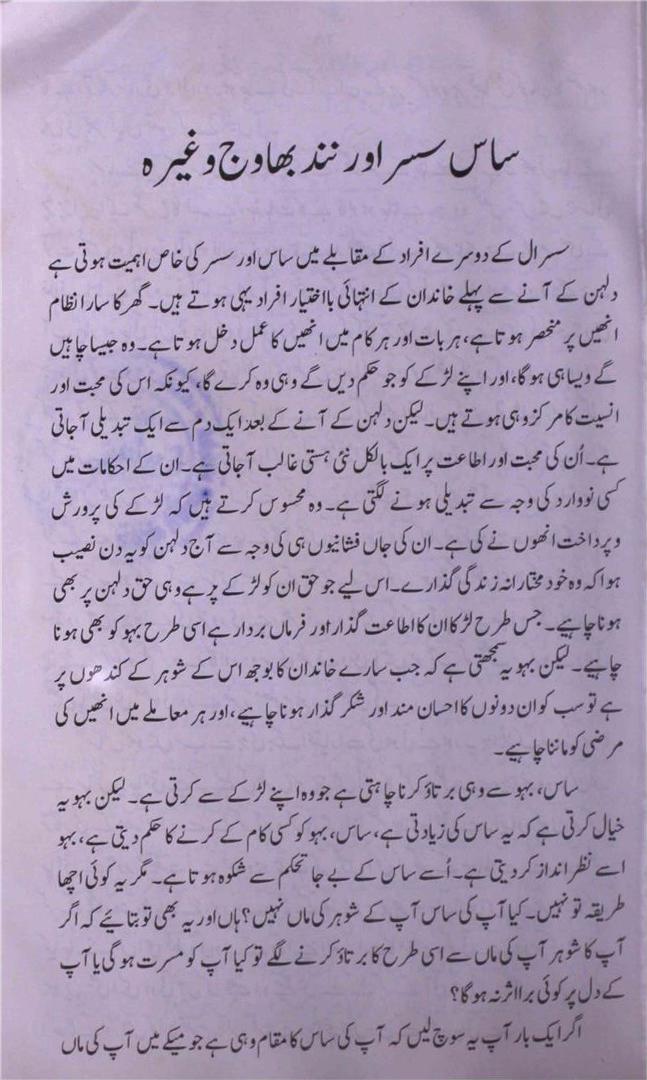 ساس سسر اور نند بھاوج وغیرہ
سسرال کے دوسرے افراد کے مقابلے میں ساس اور سسر کی خاص اہمیت ہوتی ہے
دلہن کے آنے سے پہلے خاندان کے انتہائی بااختیار افراد یہی ہوتے ہیں۔ گھر کا سارا نظام
انھیں پر منحصر ہوتا ہے، ہر بات اور ہر کام میں انھیں کا عمل دخل ہوتا ہے۔ وہ جیسا چاہیں
گے ویسا ہی ہوگا، اور اپنے لڑکے کو جو حکم دیں گے وہی وہ کرے گا، کیونکہ اس کی محبت اور
انسیت کا مرکز وہی ہوتے ہیں۔ لیکن دلہن کے آنے کے بعد ایک دم سے ایک تبدیلی آجاتی
ہے۔ اُن کی محبت اور اطاعت پر ایک بالکل نئی ہستی غالب آجاتی ہے۔ ان کے احکامات میں
کسی نووارد کی وجہ سے تبدیلی ہونے لگتی ہے۔ وہ محسوس کرتے ہیں کہ لڑکے کی پرورش
و پرداخت انھوں نے کی ہے۔ ان کی جاں فشانیوں ہی کی وجہ سے آج دلہن کو یہ دن نصیب
ہوا کہ وہ خود مختارانہ زندگی گذارے۔ اس لیے جو حق ان کو لڑکے پر ہے وہی حق دلہن پر بھی
ہونا چاہیے۔ جس طرح لڑکا ان کا اطاعت گذار اور فرماں بردار ہے اسی طرح بہو کو بھی ہونا
چاہیے۔ لیکن بہو یہ سمجھتی ہے کہ جب سارے خاندان کا بوجھ اس کے شوہر کے کندھوں پر
ہے تو سب کو ان دونوں کا احسان مند اور شکر گذار ہونا چاہیے، اور ہر معاملے میں انھیں کی
مرضی کو ماننا چاہیے۔
ساس، بہو سے وہی برتاؤ کرنا چاہتی ہے جو وہ اپنے لڑکے سے کرتی ہے۔ لیکن بہو یہ
خیال کرتی ہے کہ یہ ساس کی زیادتی ہے، ساس، بہو کو کسی کام کے کرنے کا حکم دیتی ہے، بہو
اسے نظر انداز کر دیتی ہے۔ اُسے ساس کے بے جا تحکم سے شکوہ ہوتا ہے۔ مگر یہ کوئی اچھا
طریقہ تو نہیں۔ کیا آپ کی ساس آپ کے شوہر کی ماں نہیں؟ ہاں اور یہ بھی تو بتائیے کہ اگر
آپ کا شوہر آپ کی ماں سے اسی طرح کا برتاؤ کرنے لگے تو کیا آپ کو مسرت ہوگی یا آپ
کے دل پر کوئی برا اثر نہ ہوگا؟
اگر ایک بار آپ یہ سوچ لیں کہ آپ کی ساس کا مقام وہی ہے جو میکے میں آپ کی ماں